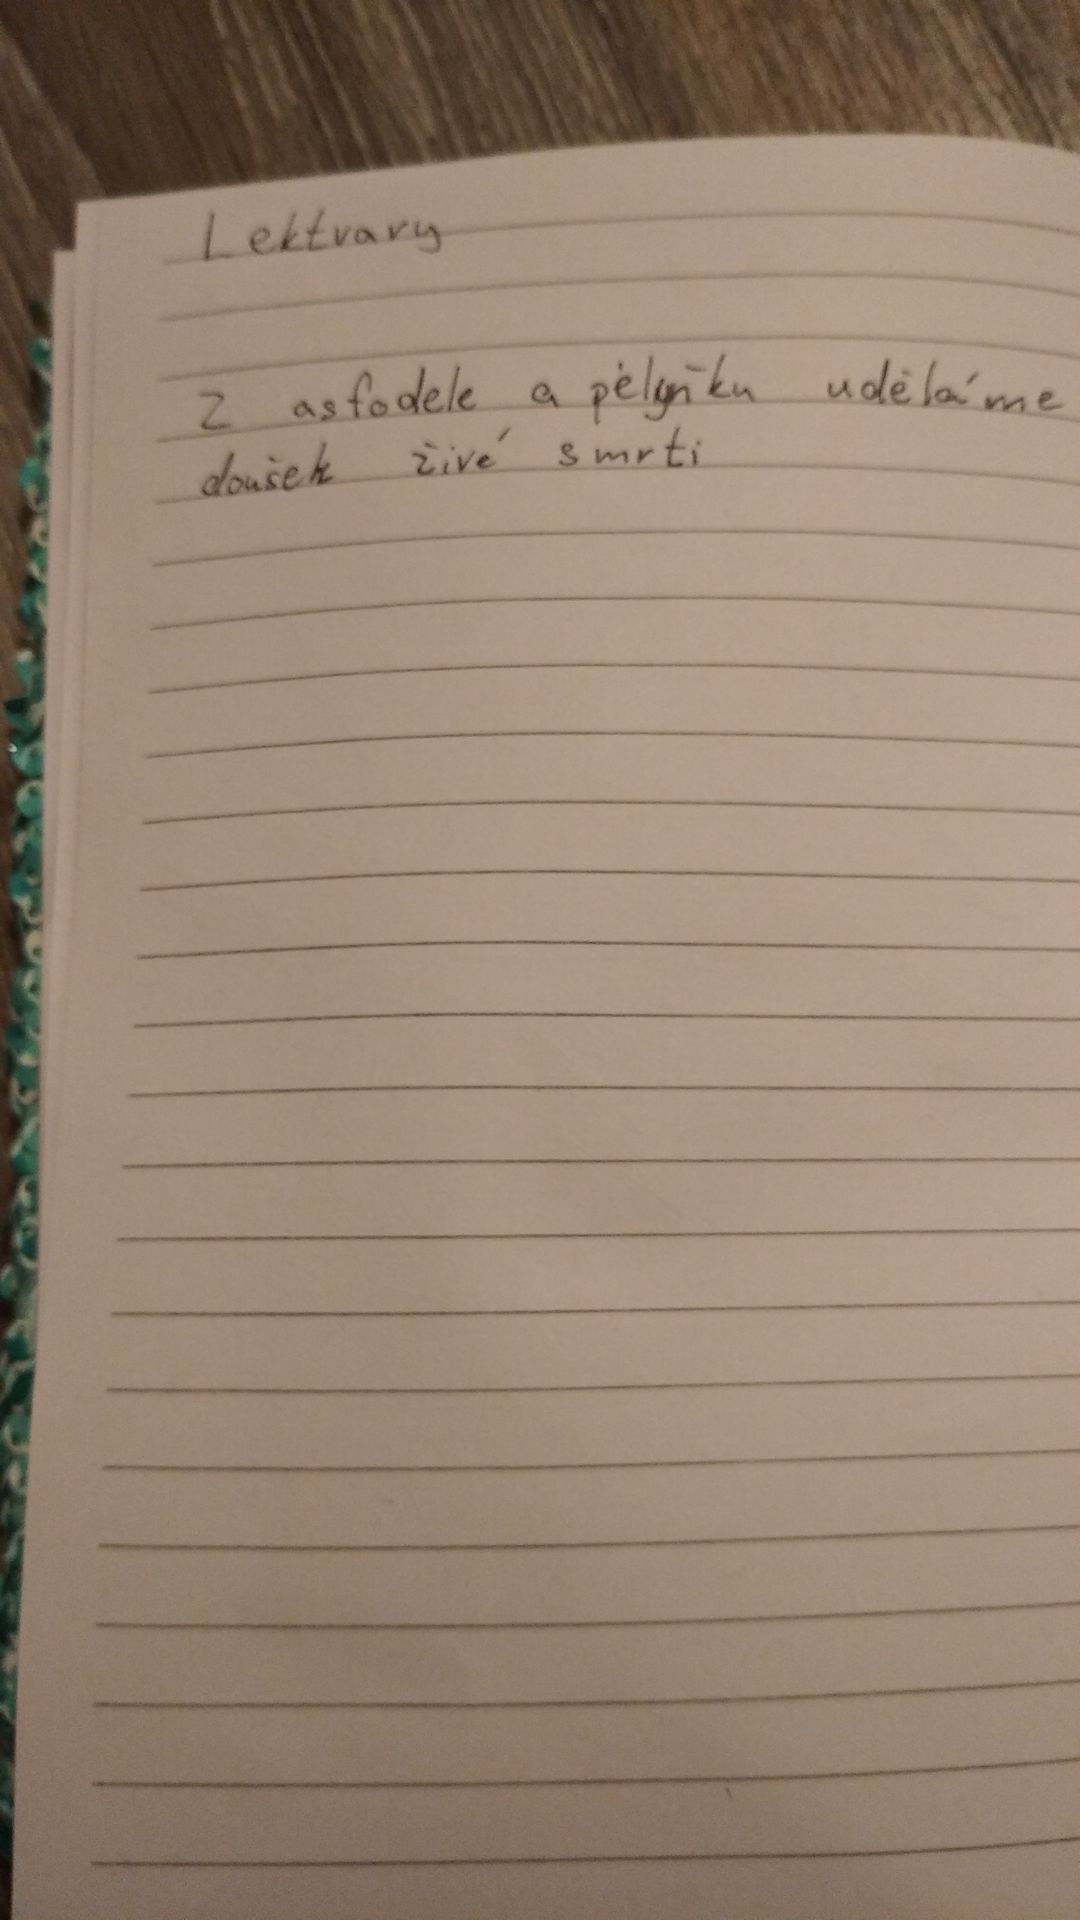 Lektvary
Z asfodele a pělyňku uděláme
doušek živé smrti